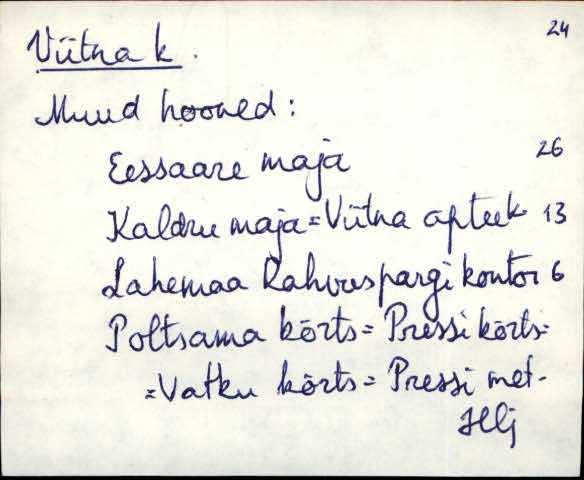 24
Viitna k.
Muud hooned:
Eessaare maja 26
Kaldru maja = Viitna apteek 13
Lahemaa Rahvuspargi kontor 6
Poltsama kõrts = Pressi kõrts =
= Vatku kõrts = Pressi met-